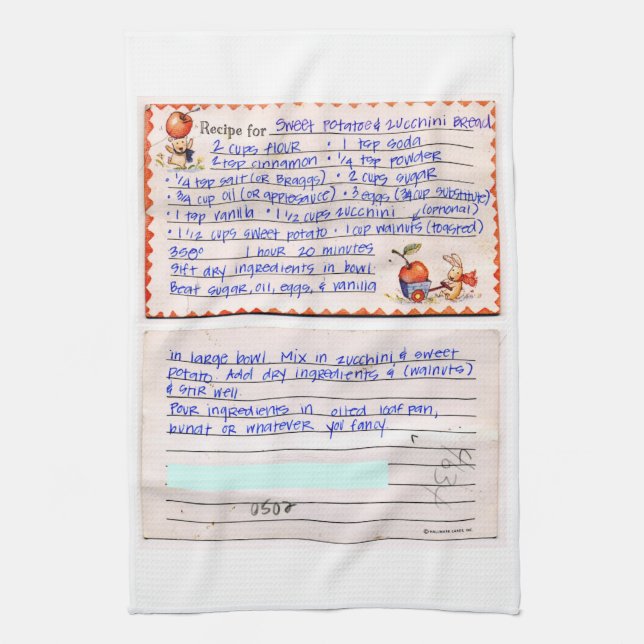 Recipe for Sweet Potatoe & Zucchini Bread
2 cups flour • 1 tsp soda
2 tsp cinnamon • 1/4 tsp powder
• 1/4 tsp salt (or Braggs) • 2 cups sugar
• 3/4 cup oil (or applesauce) • 3 eggs (3/4 cup substitute)
• 1 tsp vanilla • 1 1/2 cups zucchini (optional)
• 1 1/2 cups sweet potato • 1 cup walnuts (toasted)
350° 1 hour 20 minutes
Sift dry ingredients in bowl.
Beat sugar, oil, eggs, & vanilla
in large bowl. Mix in zucchini & sweet
potato. Add dry ingredients & (walnuts)
& stir well.
Pour ingredients in oiled loaf pan,
bundt or whatever you fancy.
0502
© HALLMARK CARDS, INC.